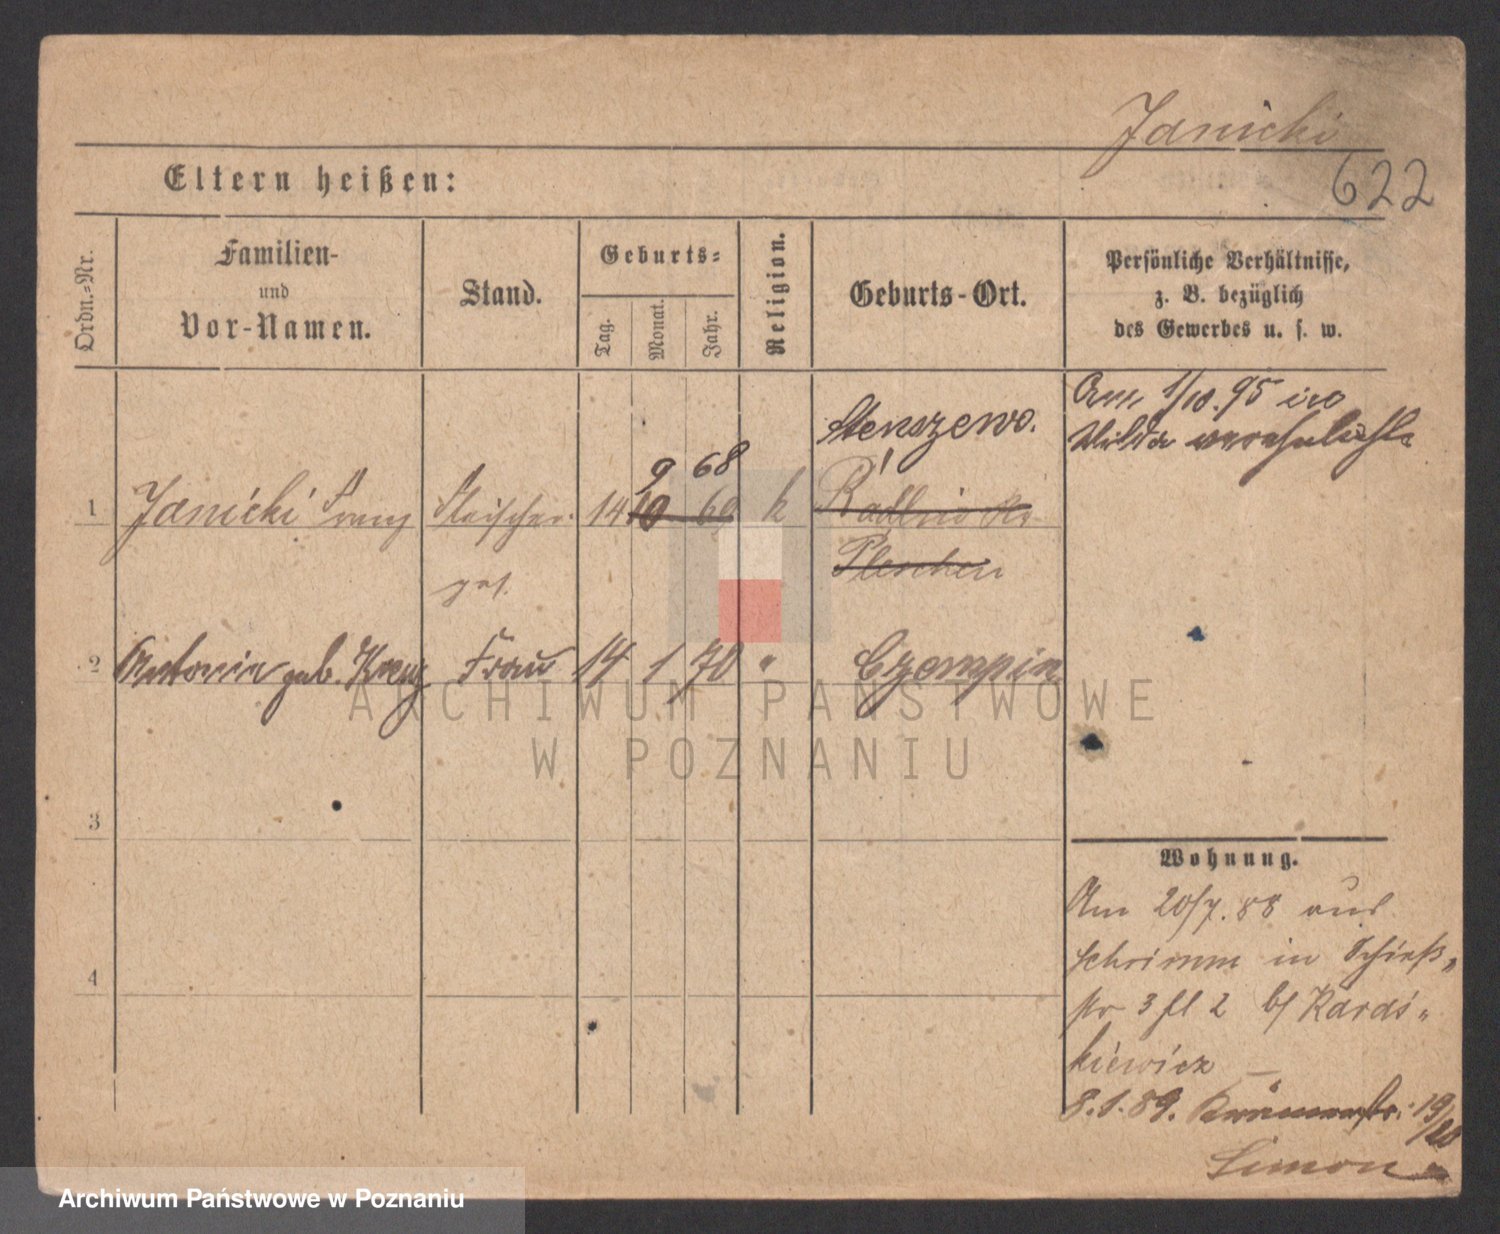 Janicki
622
Eltern heißen:
Ordn.-Nr.
Familien-
und
Vor-Namen.
Stand.
Geburts-
Tag.
Monat.
Jahr.
Religion.
Geburts-Ort.
Persönliche Verhältnisse,
z. B. bezüglich
des Gewerbes u. s. w.
Am 1/10. 95 in
Wilda verehelicht
Stenszewo.
9 68
1 Janicki Franz Fleischer 14 10 69 k Radlin Kr
Pleschen
ges.
2 Antonie geb. Frau 14 1 70 " Czempin
ARCHIWUM PAŃSTWOWE
W POZNANIU
3
4
Wohnung.
Am 20/7. 88 aus
Schrimm in Schieß„
str 3 fl 2 b/ Kardś„
kiewicz —
8.1.89. Krämerstr. 19/20
Simon
Archiwum Państwowe w Poznaniu